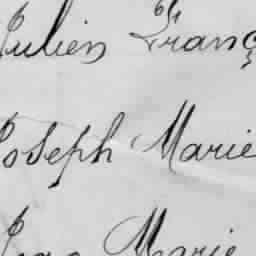 Julien Franç
Joseph Marie
Jean Marie